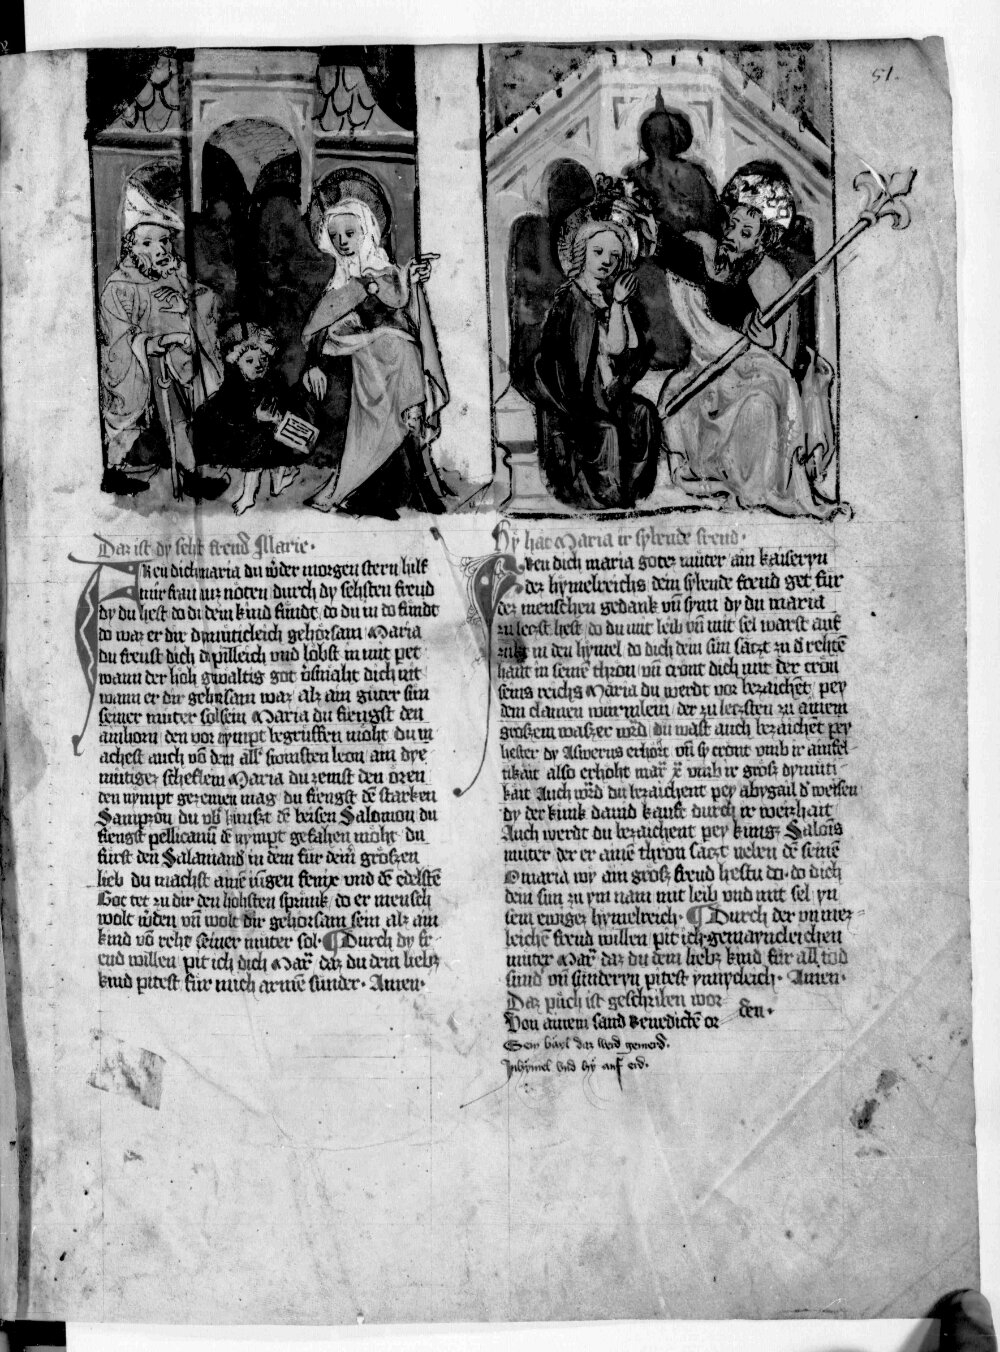 51.
Daz ist dy sehst freud Marie.
Freu dich maria du wͦder morgen stern hilf
mir frau auz nöten durch dy sehsten freud
dy du hest do du dein kind fundt do du in do fundt
do waz er dir dymuticleich gehorsam Maria
du freust dich pilleich vnd lobst in mit pet
wann der hoh gwaltig got versmaht dich nit
wann er dir gehorsam waz alz ain guter sun
seiner muter sol sein Maria du fiengst den
ainhorn den vor nympt begriffen moht du m
achest auch vō dem all grimmsten leon ain dye
mutigez scheflein Maria du zemst den oren
den nympt gezemen mag du fiengst dē starken
Sampson du vb kunst dē weisen Salomon du
fiengst pellicanū dē nympt gefahen moht du
fürst den Salamand in dem für deiner grossen
lieb du machst ainē iungen fenix vnd dē edelstē
Got tet zu dir den hohsten sprunk do er mensch
wolt wͦden vn̄ wolt dir gehorsam sein alz ain
kind vō reht seiner muter sol. ¶ Durch dy fr
eud willen pit ich dich Mar̄ daz du dein liebz
kind pitest für mich armē sunder. Amen.
Hy hat Maria ir sybende freud.
Freu dich maria gotez muter ain kaiseryn
dez hymelreichs dein sybende freud get für
dez menschen gedank vn̄ synn dy du maria
zu lecst hest do du mit leib vn̄ mit sel warst auf
zukt in den hymel do dich dein sun saczt zu d rehtē
hant in seinē thron vn̄ cront dich mit der cron
seins reichs Maria du werdt vor bezaichēt pey
dem clainen wurmlein der zu leczsten zu ainem
groszem waszer wͦrd du wast auch bezaichēt pey
hester dy Aswerus erhöht vn̄ sy cront vmb ir ainfel-
tikait also erhoht mar̄ x̄ vmb ir groz dymuti-
kait Auch wͦrd du bezaichent pey abygail d weisen
dy der kunk dauid kauft durch ir weizhait
Auch werdt du bezaichent pey kungz Salōis
muter der er ainē thron saczt neben dē seinē
O maria wy ain grosz freud hestu do. do dich
dein sun zu ym nam mit leib vnd mit sel yn
sein ewigez hymelreich. ¶ Durch der vn mez-
leichē freud willen pit ich gemaincleichen
muter Mar̄ daz du dein liebz kind für all tod
sund vn̄ sunderyn pitest ynnycleich. Amen.
Daz puch ist geschriben wor
den.
Von ainem sand Benedictē or
Sein vayl daz werd gemerd.
In hymel vnd hy auf erd.